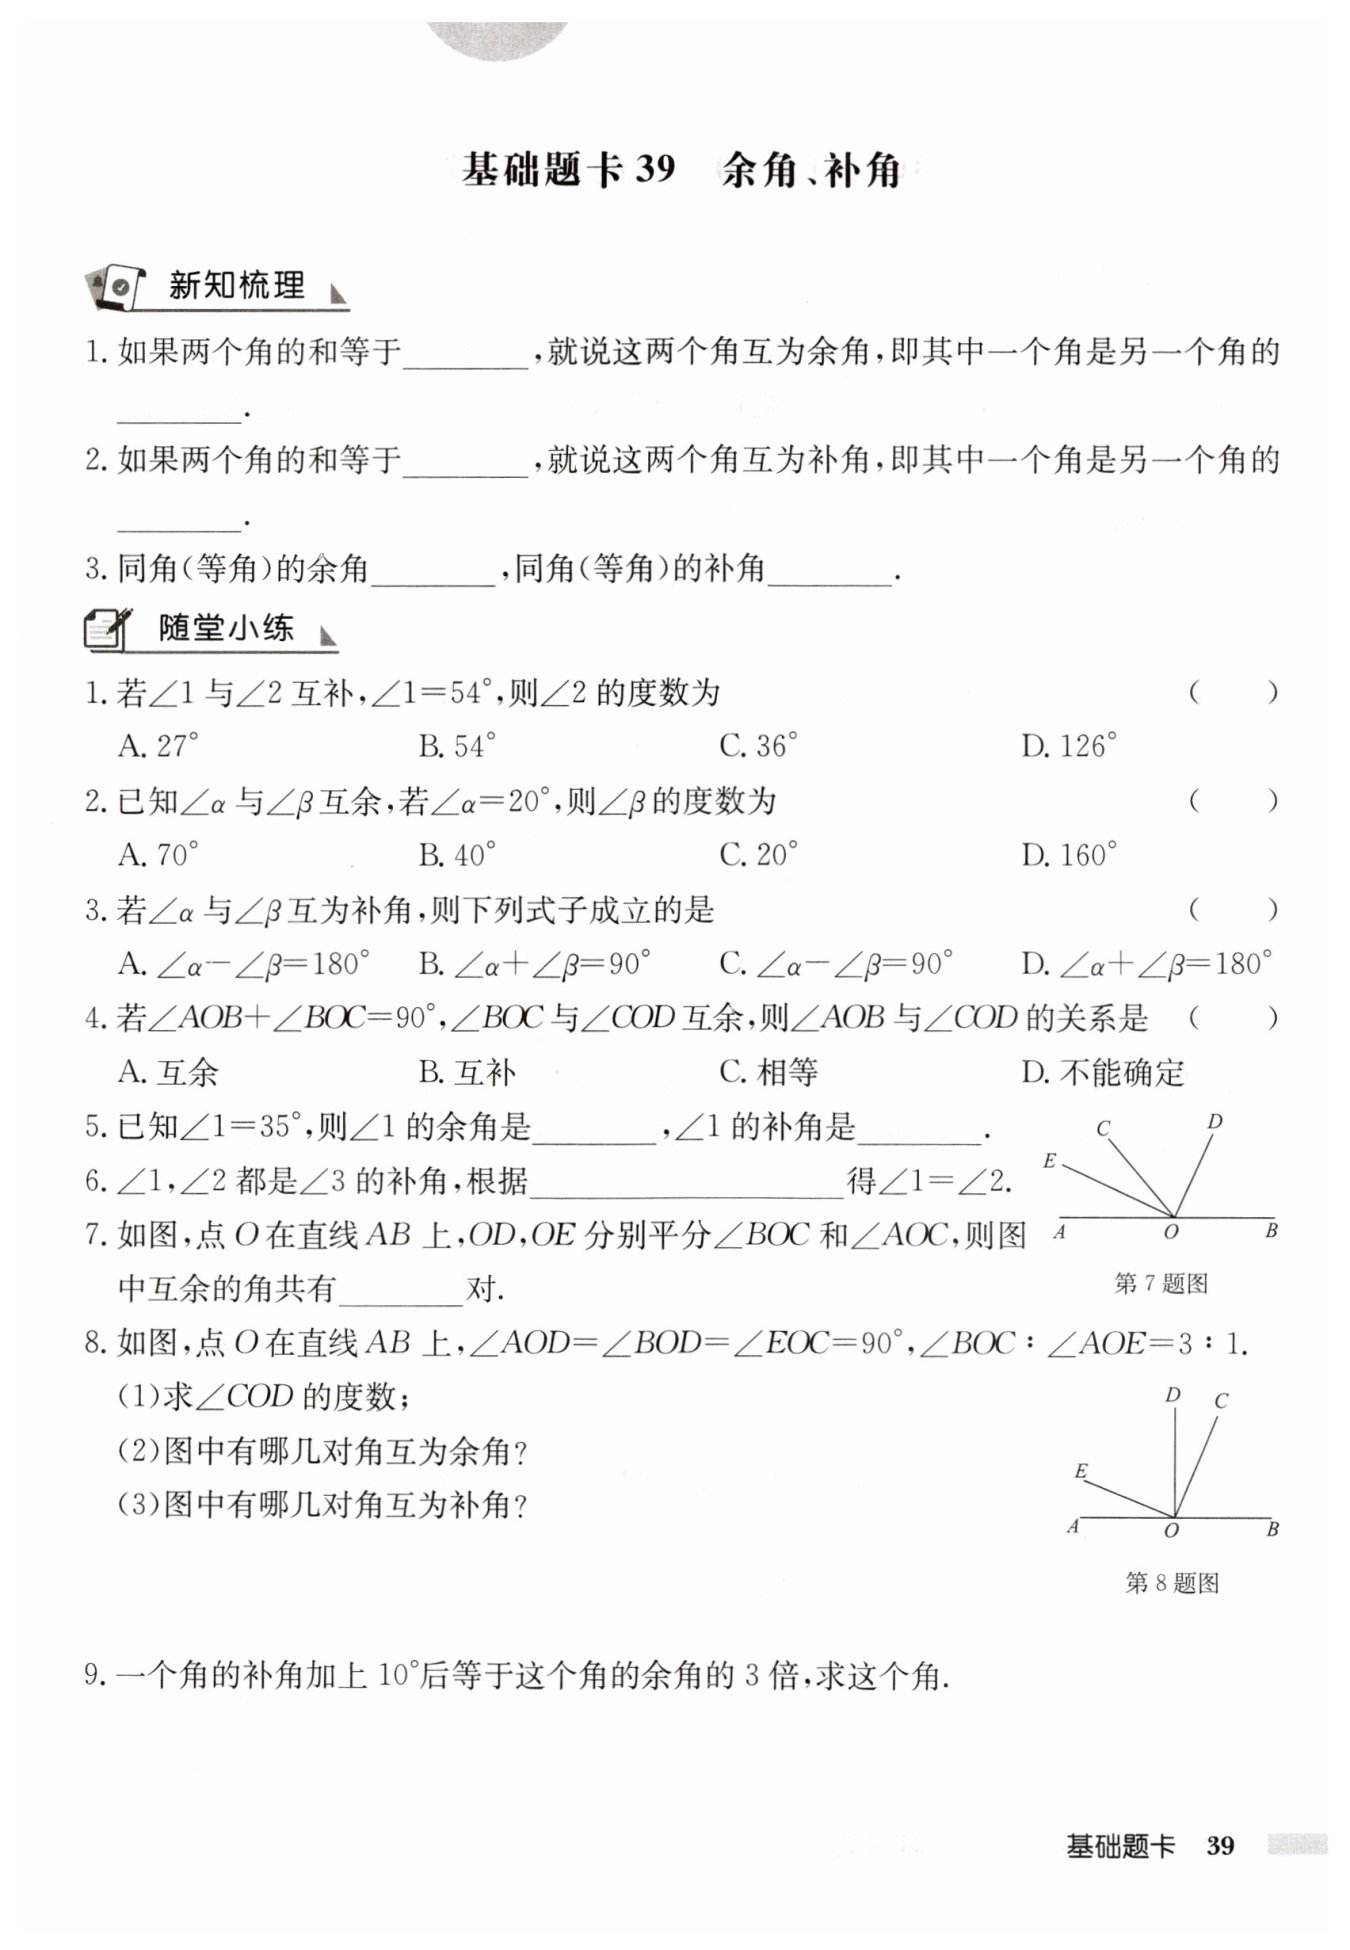 基础题卡 39 余角、补角
新知梳理
1. 如果两个角的和等于________,就说这两个角互为余角,即其中一个角是另一个角的
________.
2. 如果两个角的和等于________,就说这两个角互为补角,即其中一个角是另一个角的
________.
3. 同角(等角)的余角________,同角(等角)的补角________.
随堂小练
1. 若∠1 与∠2 互补,∠1=54°,则∠2 的度数为 ( )
A. 27° B. 54° C. 36° D. 126°
2. 已知∠α 与∠β 互余,若∠α=20°,则∠β 的度数为 ( )
A. 70° B. 40° C. 20° D. 160°
3. 若∠α 与∠β 互为补角,则下列式子成立的是 ( )
A. ∠α-∠β=180° B. ∠α+∠β=90° C. ∠α-∠β=90° D. ∠α+∠β=180°
4. 若∠AOB+∠BOC=90°,∠BOC 与∠COD 互余,则∠AOB 与∠COD 的关系是 ( )
A. 互余 B. 互补 C. 相等 D. 不能确定
5. 已知∠1=35°,则∠1 的余角是________,∠1 的补角是________.
6. ∠1,∠2 都是∠3 的补角,根据____________________得∠1=∠2.
7. 如图,点 O 在直线 AB 上,OD,OE 分别平分∠BOC 和∠AOC,则图
中互余的角共有________对.
C D
E
A O B
第 7 题图
8. 如图,点 O 在直线 AB 上,∠AOD=∠BOD=∠EOC=90°,∠BOC∶∠AOE=3∶1.
(1)求∠COD 的度数;
(2)图中有哪几对角互为余角?
(3)图中有哪几对角互为补角?
D C
E
A O B
第 8 题图
9. 一个角的补角加上 10°后等于这个角的余角的 3 倍,求这个角.
基础题卡 39